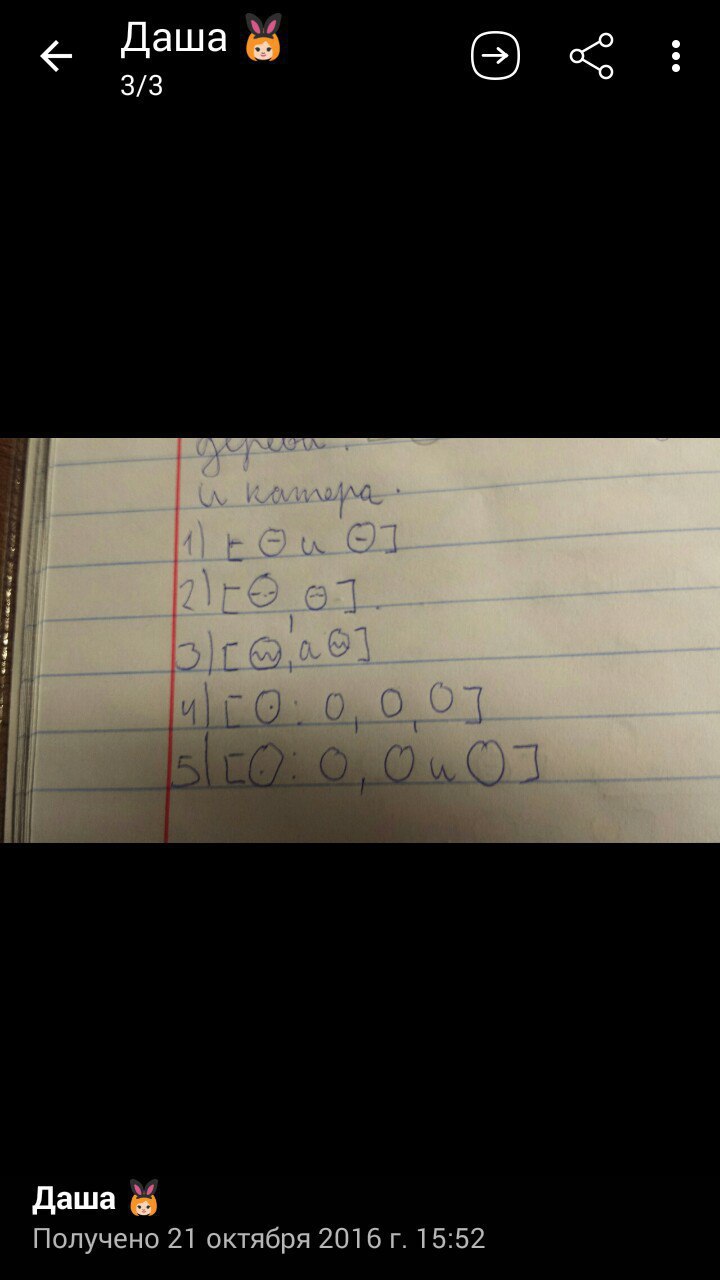 Даша
3/3
и катера.
1) [ O и O ]
2) [ O, O ].
3) [ O, а O ]
4) [ O: O, O, O ]
5) [ O: O, O и O ]
Даша
Получено 21 октября 2016 г. 15:52